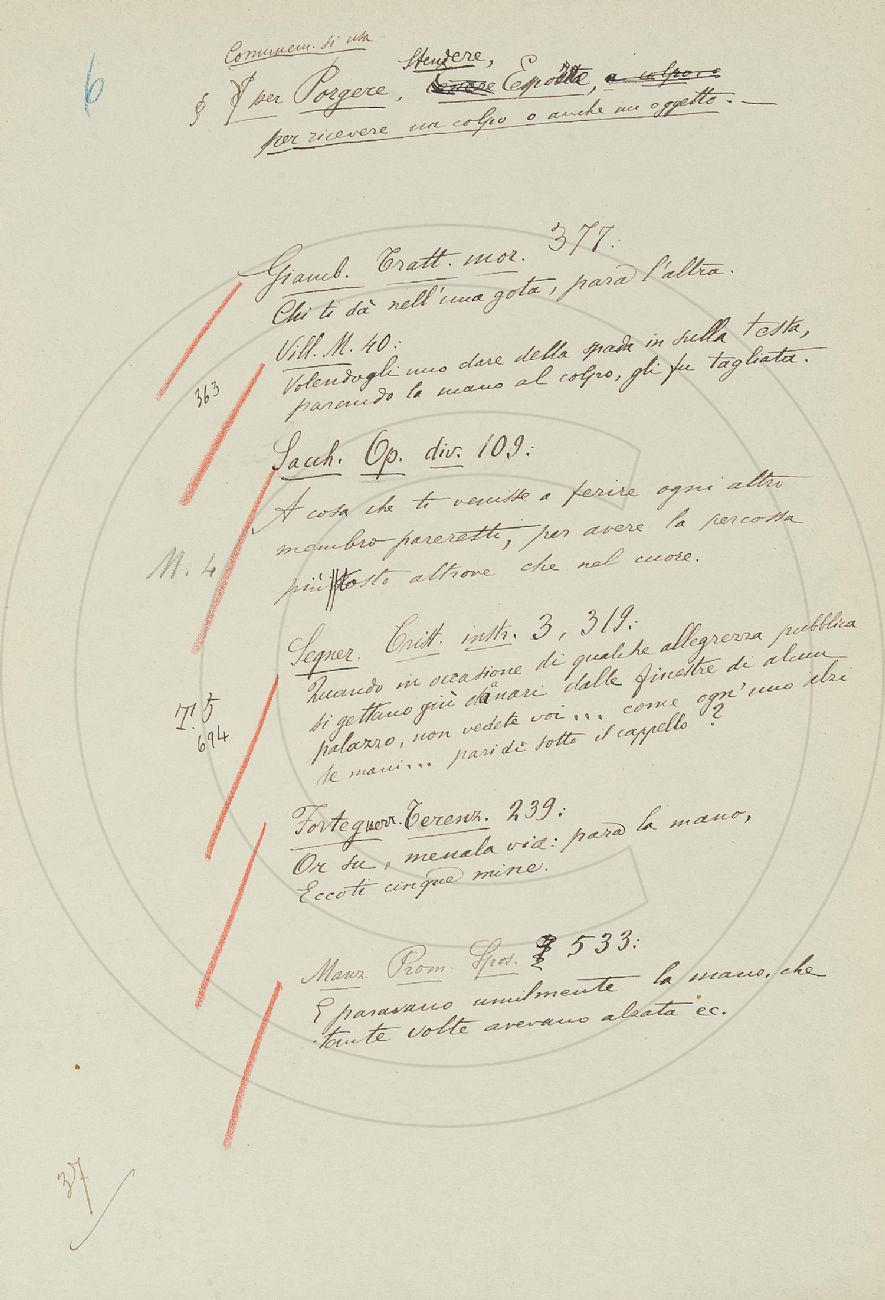 Comunem. si usa
6
§ § per Porgere, Stendere, tenere Esporre, a colpo o
per ricevere un colpo o anche un oggetto. —
Giamb. Tratt. mor. 377:
Chi ti dà nell'una gota, para l'altra.
Vill. M. 40:
Volendogli uno dare della spada in sulla testa,
363
parando la mano al colpo, gli fu tagliata.
Sacch. Op. div. 109:
A cosa che ti venisse a ferire ogni altro
membro pareresti, per avere la percossa
M. 4
più tosto altrove che nel cuore.
Segner. Crist. instr. 3, 319:
Quando in occasione di qualche allegrezza pubblica
T. 5
si gettano giù danari dalle finestre di alcun
694
palazzo, non vedete voi... come ogn'uno alzi
le mani... pari di sotto il cappello?
Forteguerr. Terenz. 239:
Or su, menala via: para la mano,
Eccoti cinque mine.
Manz. Prom. Spos. 533:
E paravano umilmente la mano, che
tante volte avevano alzata ec.
37